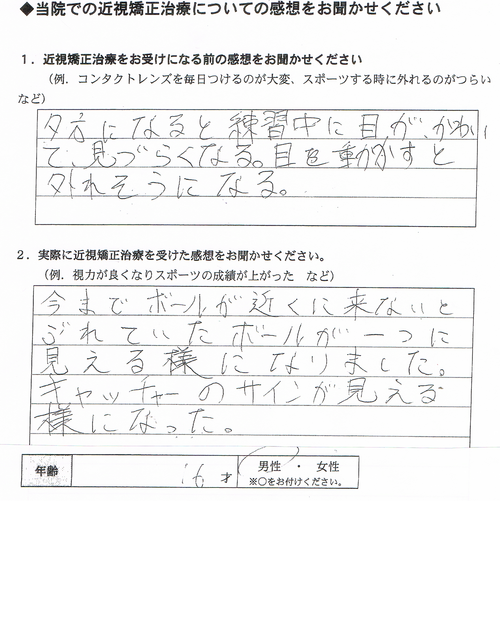 ◆当院での近視矯正治療についての感想をお聞かせください
１．近視矯正治療をお受けになる前の感想をお聞かせください
（例．コンタクトレンズを毎日つけるのが大変、スポーツする時に外れるのがつらい
など）
夕方になると練習中に目が、かわい
て、見づらくなる。目を動かすと
外れそうになる。
２．実際に近視矯正治療を受けた感想をお聞かせください。
（例．視力が良くなりスポーツの成績が上がった　など）
今までボールが近くに来ないと
ぶれていたボールが一つに
見える様になりました。
キャッチャーのサインが見える
様になった。
年齢 16才 男性 ・ 女性
※〇をお付けください。